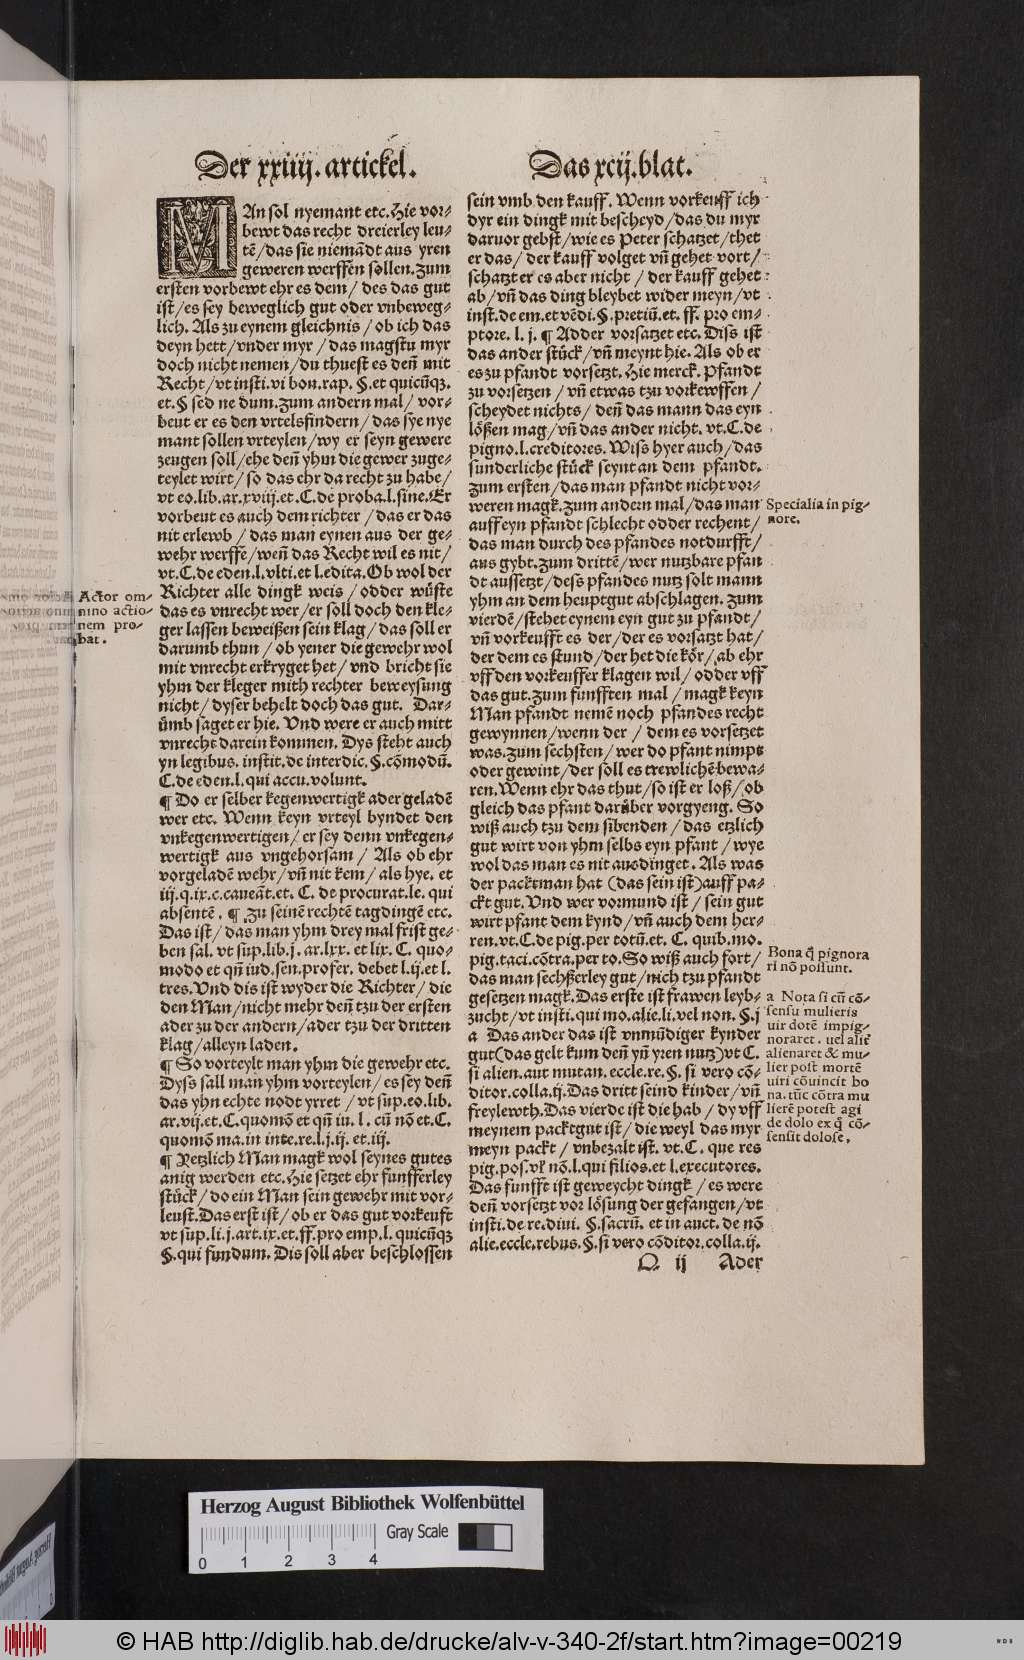 Der xxiiij. artickel.
Das xcij. blat.
MAn sol nyemant etc. Hie vor-
bewt das recht dreierley leu-
tē / das sie niemādt aus yren
geweren werffen sollen. Zum
ersten vorbewt ehr es dem / des das gut
ist / es sey beweglich gut oder vnbeweg-
lich. Als zu eynem gleichnis / ob ich das
deyn hett / vnder myr / das magstu myr
doch nicht nemen / du thuest es deñ mit
Recht / vt insti. vi bon. rap. §. et quicūqꝫ.
et. § sed ne dum. Zum andern mal / vor-
beut er es den vrtelsfindern / das sye nye
mant sollen vrteylen / wy er seyn gewere
zeugen soll / ehe deñ yhm die gewer zuge-
teylet wirt / so das ehr da recht zu habe /
vt eo. lib. ar. xviij. et. C. de proba. l. sine. Er
vorbeut es auch dem richter / das er das
nit erlewb / das man eynen aus der ge-
wehr werffe / weñ das Recht wil es nit /
vt. C. de eden. l. vlti. et l. edita. Ob wol der
Richter alle dingk weis / odder wüste
das es vnrecht wer / er soll doch den kle-
ger lassen beweißen sein klag / das soll er
darumb thun / ob yener die gewehr wol
mit vnrecht erkryget het / vnd bricht sie
yhm der kleger mith rechter beweysung
nicht / dyser behelt doch das gut. Dar-
ümb saget er hie. Vnd were er auch mitt
vnrecht darein kommen. Dys steht auch
yn legibus. instit. de interdic. §. cōmodū.
C. de eden. l. qui accu. volunt.
¶ Do er selber kegenwertigk ader geladē
wer etc. Wenn keyn vrteyl byndet den
vnkegenwertigen / er sey denn vnkegen-
wertigk aus vngehorsam / Als ob ehr
vorgeladē wehr / vñ nit kem / als hye. et
iij. q. ix. c. caueāt. et. C. de procurat. le. qui
absentē. ¶ Zu seinē rechtē tagdingē etc.
Das ist / das man yhm drey mal frist ge-
ben sal. vt sup. lib. j. ar. lxx. et lix. C. quo-
modo et qñ iud. sen. profer. debet l. ij. et l.
tres. Vnd dis ist wyder die Richter / die
den Man / nicht mehr deñ tzu der ersten
ader zu der andern / ader tzu der dritten
klag / alleyn laden.
¶ So vorteylt man yhm die gewehr etc.
Dyss sall man yhm vorteylen / es sey deñ
das yhn echte nodt yrret / vt sup. eo. lib.
ar. vij. et. C. quomō et qñ iu. l. cū nō et. C.
quomō ma. in inte. re. l. j. ij. et. iij.
¶ Yetzlich Man magk wol seynes gutes
anig werden etc. Hie setzet ehr funfferley
stück / do ein Man sein gewehr mit vor-
leust. Das erst ist / ob er das gut vorkeuft
vt sup. li. j. art. ix. et. ff. pro emp. l. quicūqꝫ
§. qui fundum. Dis soll aber beschlossen
Actor om-
nino actio-
nem pro-
bat.
sein vmb den kauff. Wenn vorkeuff ich
dyr ein dingk mit bescheyd / das du myr
daruor gebst / wie es Peter schatzet / thet
er das / der kauff volget vñ gehet vort /
schatzt er es aber nicht / der kauff gehet
ab / vñ das ding bleybet wider meyn / vt
inst. de em. et vēdi. §. pretiū. et. ff. pro em-
ptore. l. j. ¶ Adder vorsatzet etc. Diss ist
das ander stück / vñ meynt hie. Als ob er
es zu pfandt vorsetzt. Hie merck. Pfandt
zu vorsetzen / vñ etwas tzu vorkewffen /
scheydet nichts / deñ das mann das eyn
lößen mag / vñ das ander nicht. vt. C. de
pigno. l. creditores. Wiss hyer auch / das
sunderliche stück seynt an dem pfandt.
Zum ersten / das man pfandt nicht vor-
weren magk. Zum andern mal / das man
auff eyn pfandt schlecht odder rechent /
das man durch des pfandes notdurfft /
aus gybt. Zum drittē / wer nutzbare pfan
dt aussetzt / desß pfandes nutz solt mann
yhm an dem heuptgut abschlagen. Zum
vierdē / stehet eynem eyn gut zu pfandt /
vñ vorkeufft es der / der es vorsatzt hat /
der dem es stund / der het die kör / ab ehr
vff den vorkeuffer klagen wil / odder vff
das gut. Zum funfften mal / magk keyn
Man pfandt nemē noch pfandes recht
gewynnen / wenn der / dem es vorsetzet
was. Zum sechsten / wer do pfant nimpt
oder gewint / der soll es trewlichē bewa-
ren. Wenn ehr das thut / so ist er loß / ob
gleich das pfant darüber vorgyeng. So
wiß auch tzu dem sibenden / das etzlich
gut wirt von yhm selbs eyn pfant / wye
wol das man es nit ausdinget. Als was
der packtman hat (das sein ist) auff pa-
ckt gut. Vnd wer vormund ist / sein gut
wirt pfant dem kynd / vñ auch dem her-
ren. vt. C. de pig. per totū. et. C. quib. mo.
pig. taci. cōtra. per to. So wiß auch fort /
das man sechßerley gut / nich tzu pfandt
gesetzen magk. Das erste ist frawen leyb-
zucht / vt insti. qui mo. alie. li. vel non. §. j
a Das ander das ist vnmūdiger kynder
gut (das gelt kum denñ yñ yren nutz) vt C.
si alien. aut mutan. eccle. re. §. si vero cō-
ditor. colla. ij. Das dritt seind kinder / vñ
freylewth. Das vierde ist die hab / dy vff
meynem packtgut ist / die weyl das myr
meyn packt / vnbezalt ist. vt. C. que res
pig. pos. vl nō. l. qui filios. et l. executores.
Das funfft ist geweycht dingk / es were
denñ vorsetzt vor lösung der gefangen / vt
insti. de re. diui. §. sacrū. et in auct. de nō
alie. eccle. rebus. §. si vero cōditor. colla. ij.
Q ij Ader
Specialia in pig-
nore.
Bona q̄ pignora
ri nō possunt.
a Nota si cū cō-
sensu mulieris
uir dotē impig-
noraret. uel aliē
alienaret & mu-
lier post mortē
uiri cōuincit bo
na. tūc cōtra mu
lierē potest agi
de dolo ex q̄ cō-
sensit dolose,
Herzog August Bibliothek Wolfenbüttel
Gray Scale
0 1 2 3 4
© HAB http://diglib.hab.de/drucke/alv-v-340-2f/start.htm?image=00219